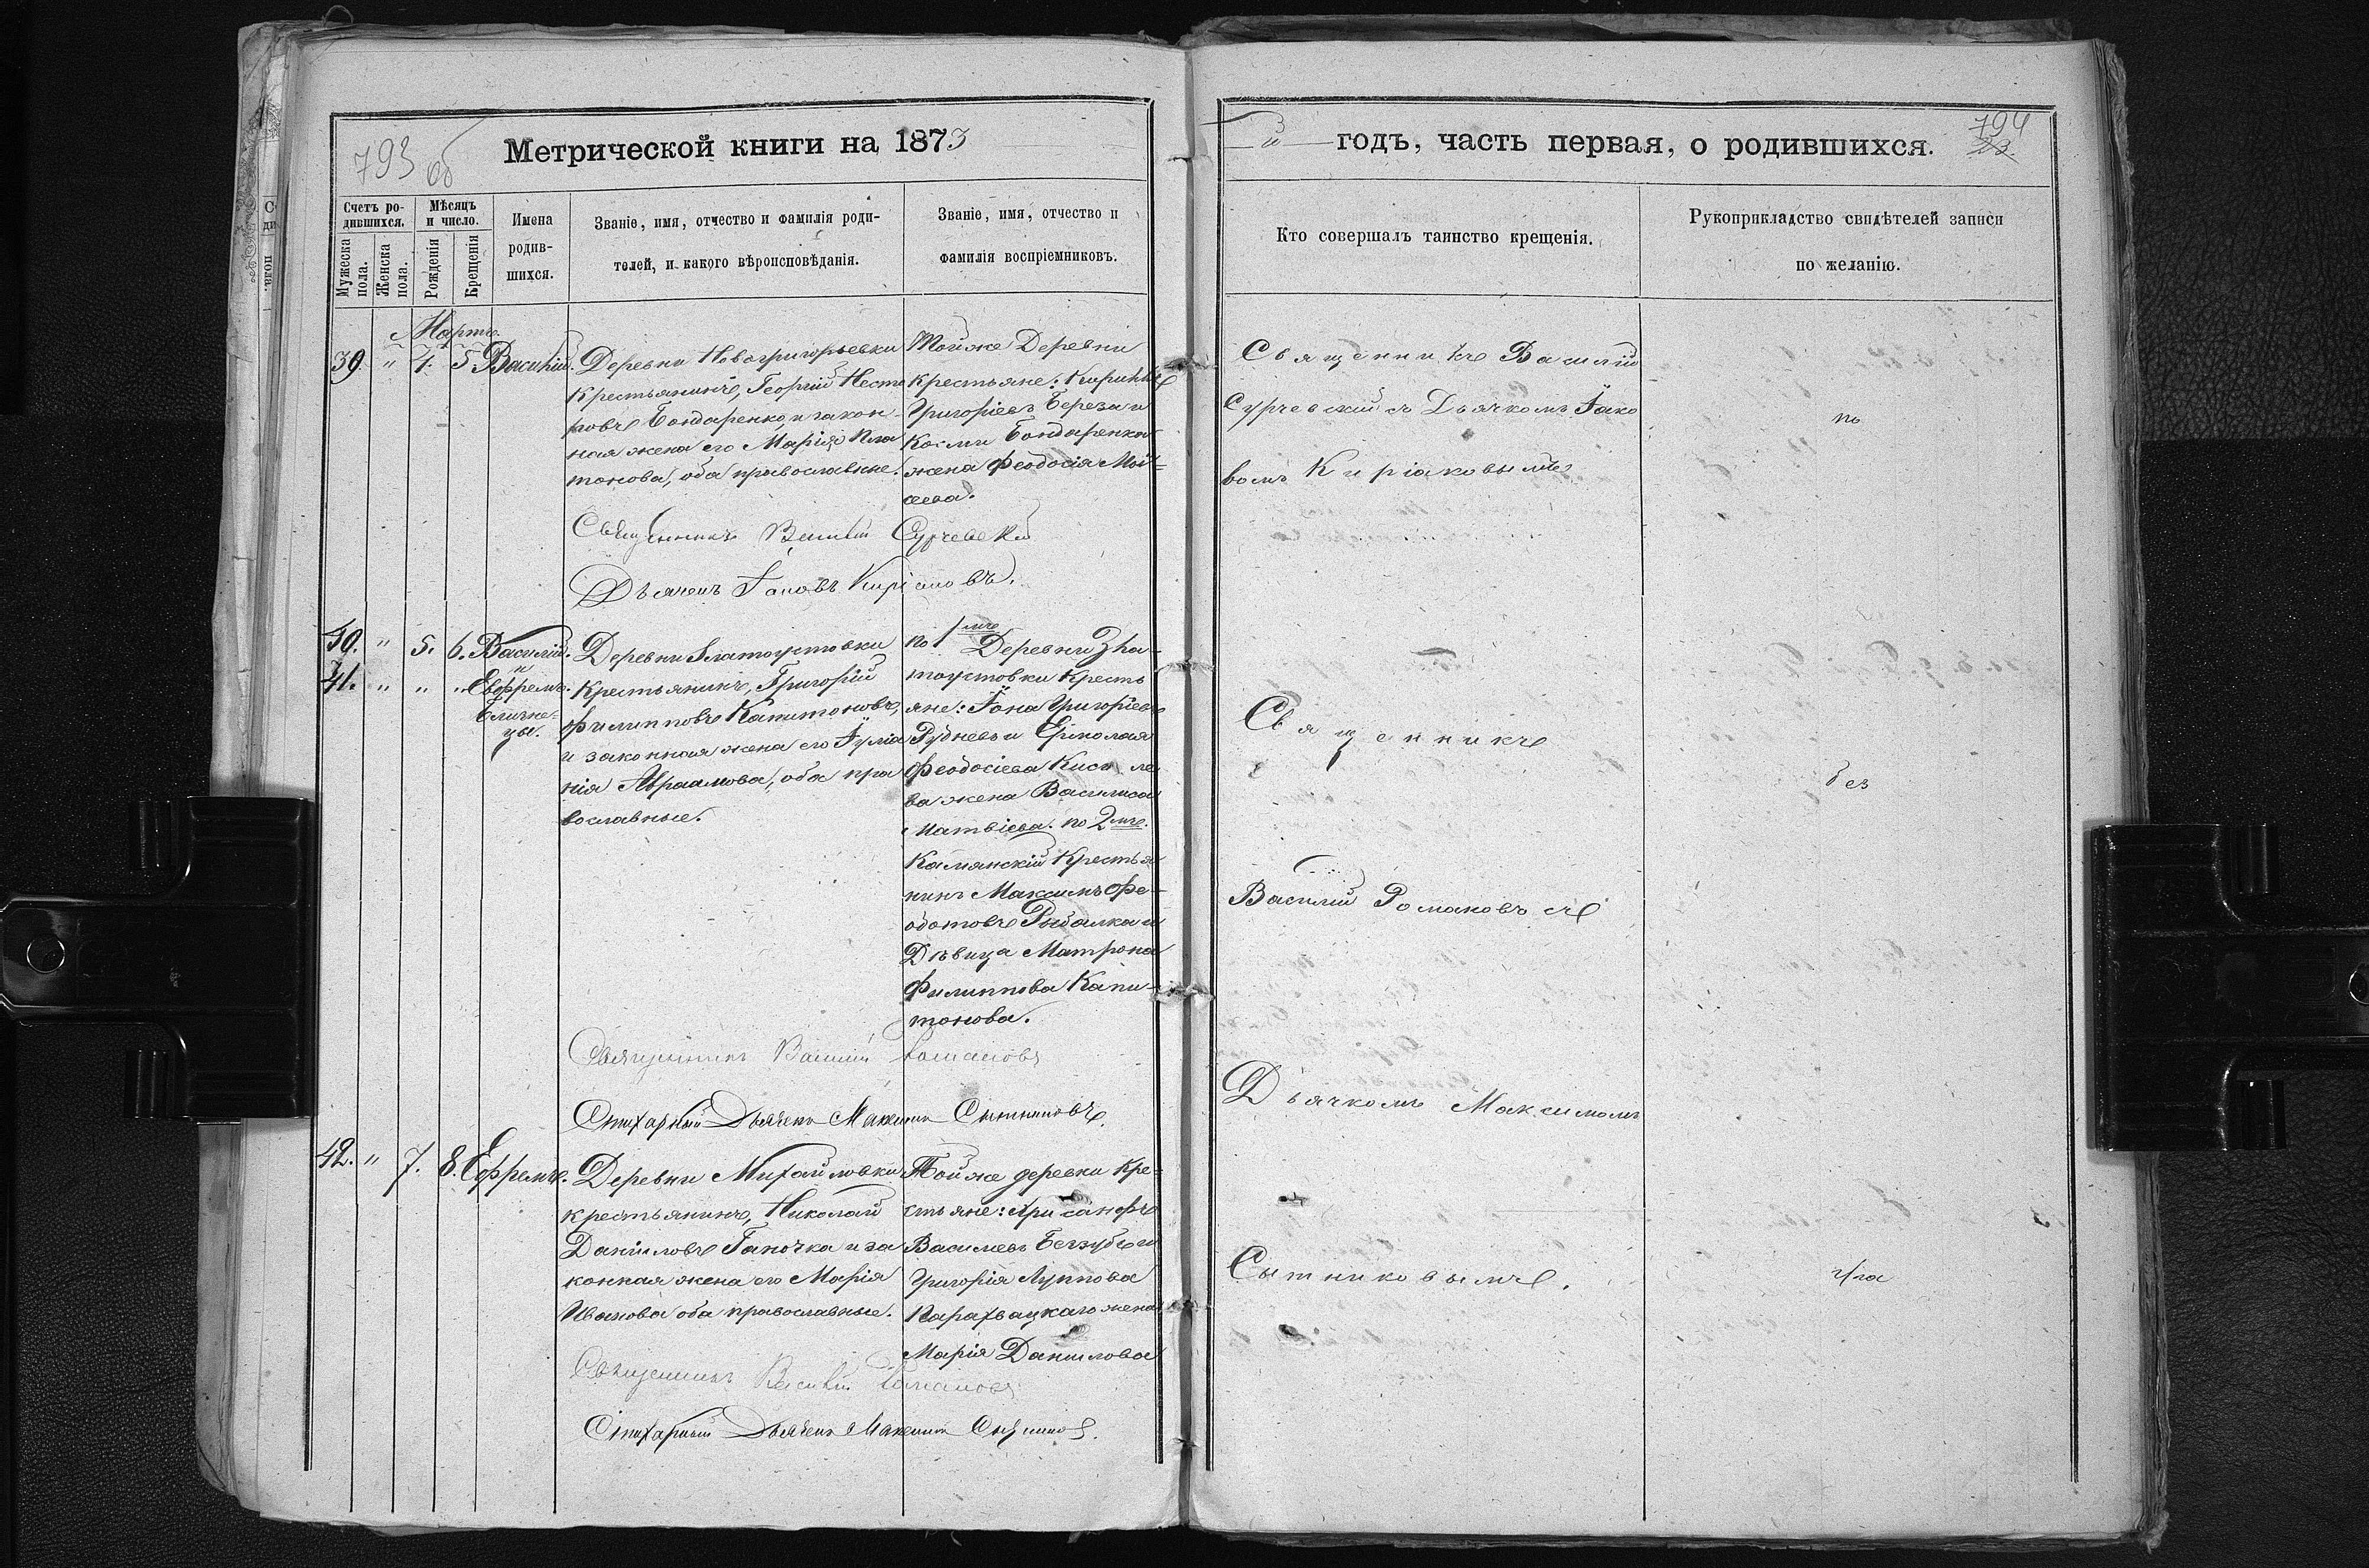 793 об
Метрической книги на 1873
Счетъ ро-
дившихся.
Мѣсяцъ
и число.
Имена
родив-
шихся.
Званіе, имя, отчество и фамилія роди-
телей, и какого вѣроисповѣданія.
Званіе, имя, отчество и
фамилія воспріемниковъ.
Мужеска
пола.
Женска
пола.
Рожденія
Крещенія
Мартъ
39. " 4. 5 Василій.
Деревни Новогригорьевки
Крестьянинъ, Георгій Несте
ровъ Бондаренко, и закон-
ная жена его Марія Пла
тонова, оба православные.
Той же Деревни
Крестьяне: Кириллъ
Григоріевъ Береза и
Космы Бондаренка
жена Феодосія Мои=
сеева.
Священникъ Василій Сурчевскій
Дьячекъ Іаковъ Киріаковъ.
40. " 5. 6. Василій.
и
41. " " " Евфремъ.
Близне=
цы.
Деревни Златоустовки
Крестьянинъ, Григорій
Филипповъ Капитоновъ,
и законная жена его Іуліа
нія Авраамова, оба пра
вославные.
по 1мъ Деревни Зла-
тоустовки Кресть
яне: Іона Григоріевъ
Рудневъ и Ермолая
Феодосіева Кисе ле
ва жена Василиса
Матвіева. по 2мъ.
Камянскій Крестья
нинъ Максимъ Фе-
одотовъ Рыбалка и
Дѣвица Матрона
Филиппова Капи-
тонова.
Священникъ Василій Романовъ
Стихарный Дьячекъ Максимъ Сытниковъ.
42. " 7. 8. Ефремъ.
Деревни Михайловки
крестьянинъ, Николай
Даніиловъ Ганочка и за
конная жена его Марія
Иванова оба православные.
Той же деревни Кре=
стьяне: Хрисанфъ
Василіевъ Беззубъ и
Григорія Луппова
Карахвацкаго жена
Марія Данилова
Священникъ Василій Романовъ
Стихарный Дьячекъ Максимъ Сытниковъ.
3
й годъ, часть первая, о родившихся.
794
Кто совершалъ таинство крещенія.
Рукоприкладство свидѣтелей записи
по желанію.
Священникъ Василій
Сурчевскій съ Дьячкомъ Іако
вомъ Киріаковымъ
Священникъ
без
Василій Романовъ съ
Дьячкомъ Максимомъ
Сытниковымъ.